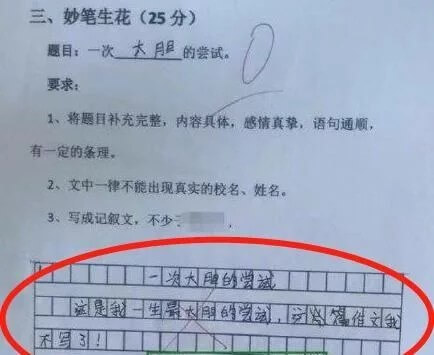 三、妙笔生花（25 分）
题目：一次 大胆 的尝试。
0
要求：
1、将题目补充完整，内容具体，感情真挚，语句通顺，
有一定的条理。
2、文中一律不能出现真实的校名、姓名。
3、写成记叙文，不少于
一次大胆的尝试
这是我一生最大胆的尝试，这篇作文我
不写了！